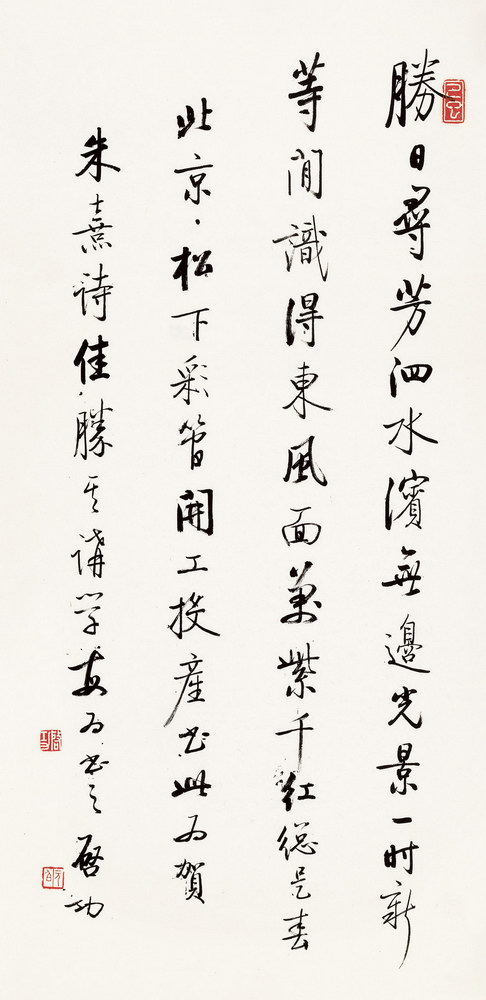 勝日尋芳泗水濱無邊光景一時新
等閒識得東風面萬紫千紅總是春
北京·松下彩管開工投產書此為賀
朱熹詩佳勝其講學每為書之 啓功